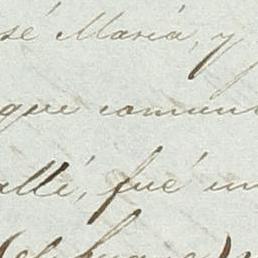 sé Maria, y
que comun
allé, fué un